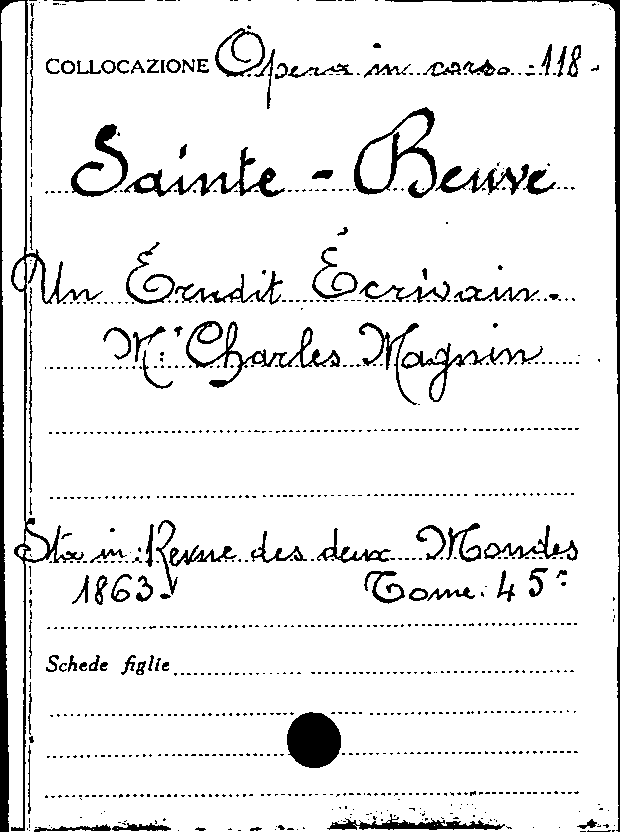 COLLOCAZIONE Opera in corso -118-
Sainte - Beuve
Un Érudit Écrivain.
M.r Charles Magnin
Sta in: Revue des deux Mondes
1863. Tome. 45º
Schede figlie